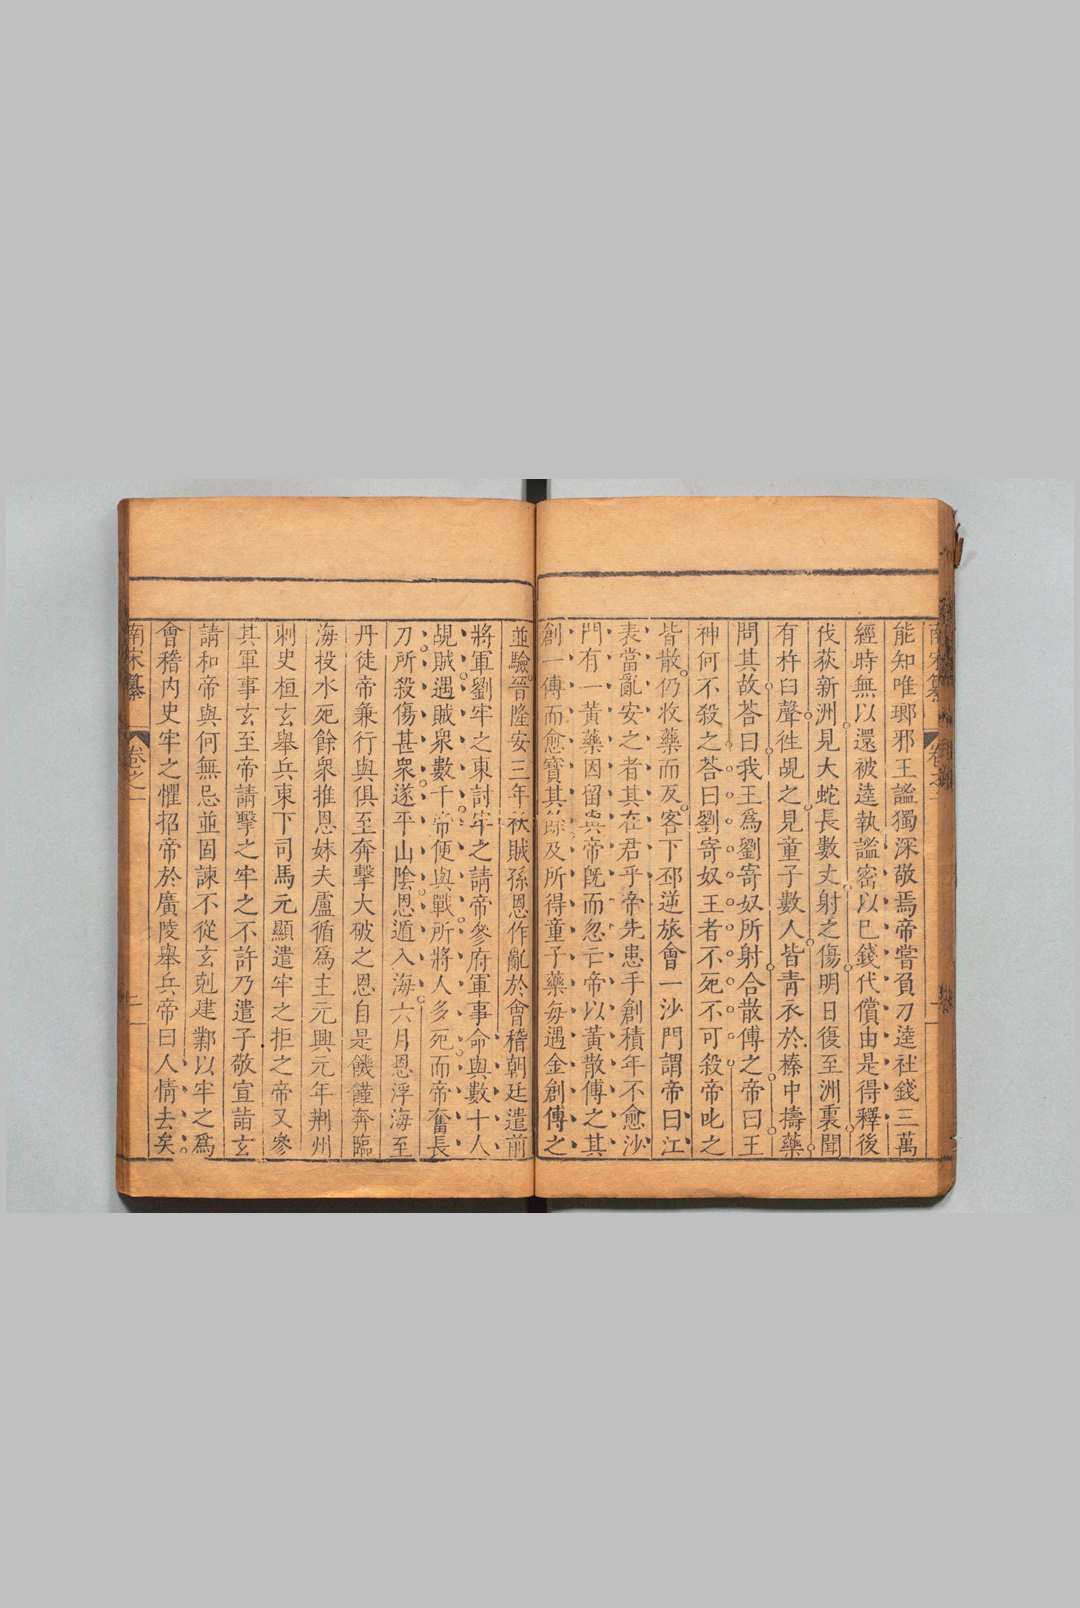 能知唯瑯邪王謐獨深敬焉帝嘗負刁逵社錢三萬
經時無以還被逵執謐密以己錢代償由是得釋後
伐荻新洲見大蛇長數丈射之傷明日復至洲裏聞
有杵臼聲徃覘之見童子數人皆青衣於榛中擣藥
問其故荅曰我王爲劉寄奴所射合散傅之帝曰王
神何不殺之荅曰劉寄奴王者不死不可殺帝叱之
皆散仍收藥而反客下邳逆旅會一沙門謂帝曰江
表當亂安之者其在君乎帝先患手創積年不愈沙
門有一黃藥因留與帝旣而忽亡帝以黃散傅之其
創一傅而愈寳其餘及所得童子藥每遇金創傅之
並驗晉隆安三年秋賊孫恩作亂於會稽朝廷遣前
將軍劉牢之東討牢之請帝叅府軍事命與數十人
覘賊遇賊衆數千帝便與戰所將人多死而帝奮長
刀所殺傷甚衆遂平山陰恩遁入海六月恩浮海至
丹徒帝兼行與俱至奔擊大破之恩自是饑饉奔臨
海投水死餘衆推恩妹夫盧循爲主元興元年荆州
刺史桓玄舉兵東下司馬元顯遣牢之拒之帝又叅
其軍事玄至帝請擊之牢之不許乃遣子敬宣詣玄
請和帝與何無忌並固諫不從玄剋建鄴以牢之爲
會稽内史牢之懼招帝於廣陵舉兵帝曰人情去矣
南宋纂
卷之一
二